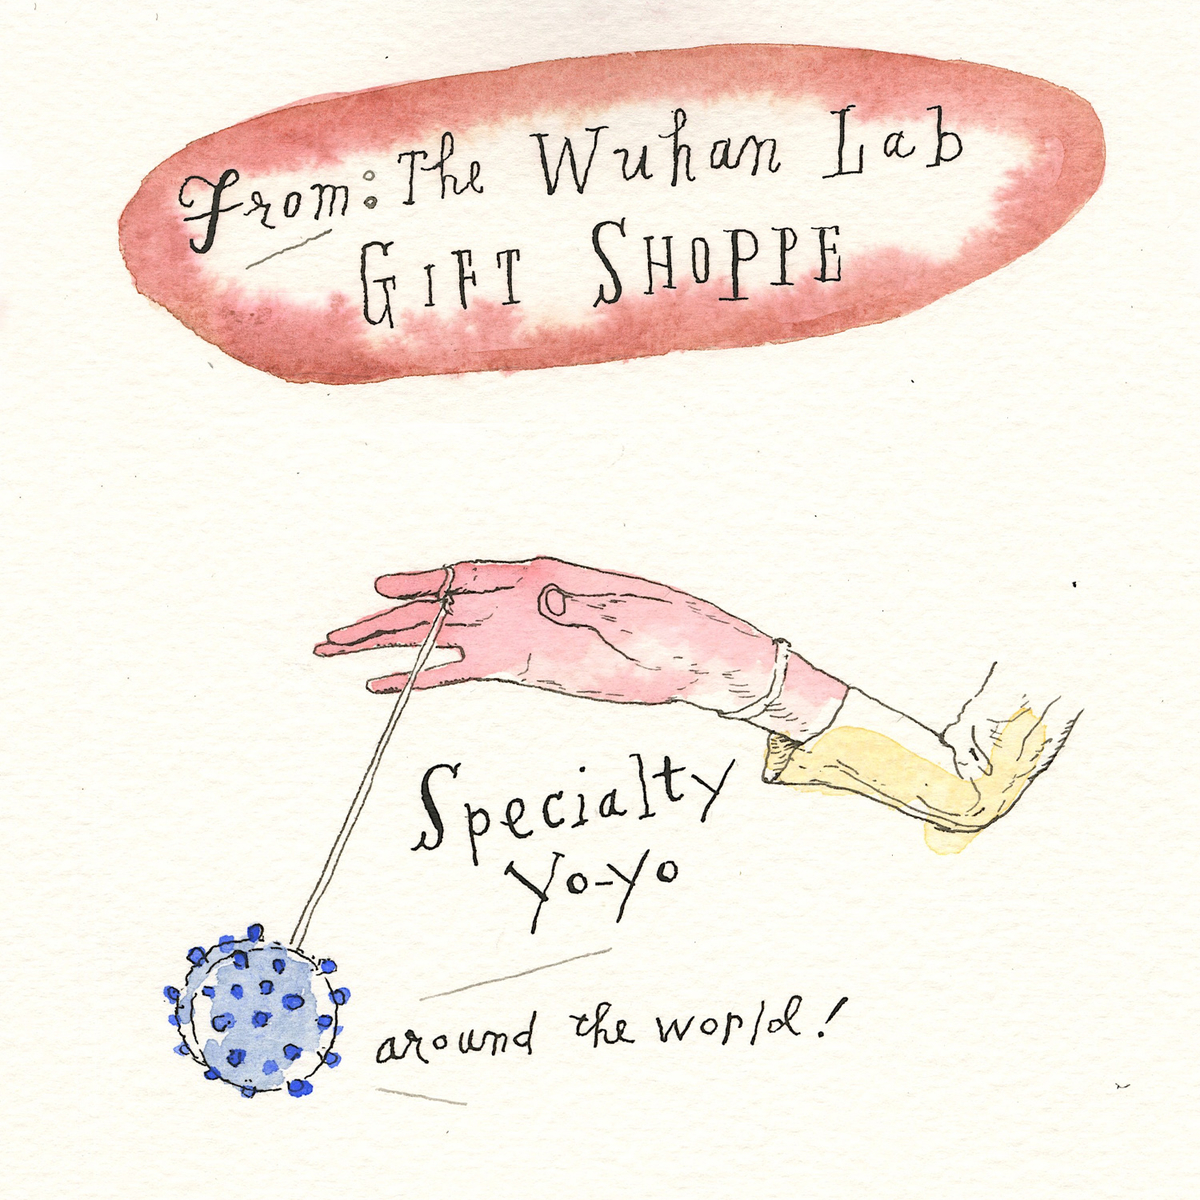 From: The Wuhan Lab
GIFT SHOPPE
Specialty
Yo-Yo
around the world!